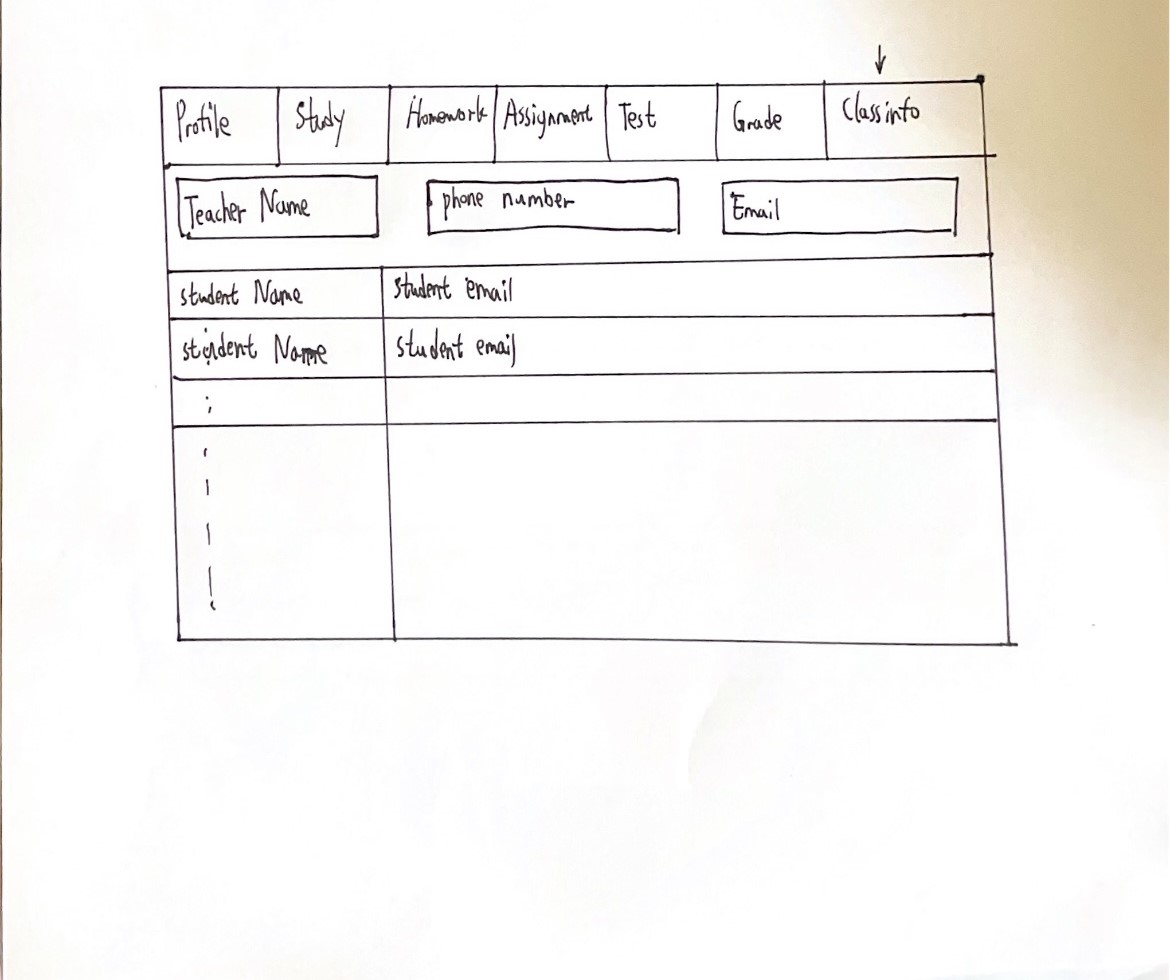 Profile Study Homework Assignment Test Grade Class info
Teacher Name phone number Email
student Name student email
student Name student email